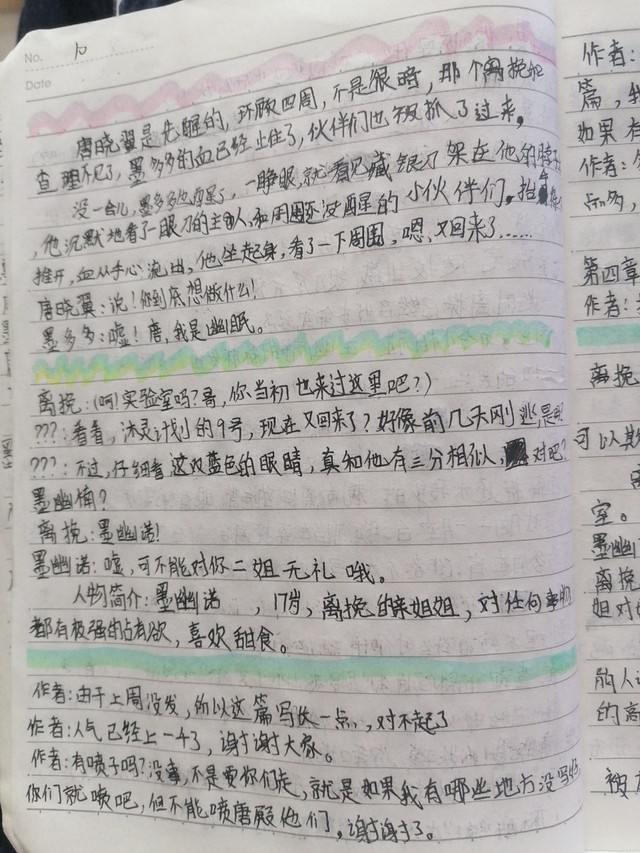 No. 10
Date
唐晓翼是先醒的，环顾四周，不是很暗，那个离挽和
查理不见了，墨多多的血已经止住了，伙伴们也被抓了过来。
没一会儿，墨多多也醒了，一睁眼，就看见藏银刀架在他的脖子
，他沉默地看了一眼刀的主人，和周围还没醒的小伙伴们。抬
推开，血从手心流出，他坐起身，看了一下周围，嗯，又回来了……
唐晓翼：说！你到底想做什么！
墨多多：嘘！唐，我是幽眠。
离挽：（呵！实验室吗？哥，你当初也来过这里吧？）
???：看看，沐灵计划的9号，现在又回来了？好像前几天刚逃，是
???：不过，仔细看这双蓝色的眼睛，真和他有三分相似，对吧？
墨幽倾？
离挽：墨幽诺！
墨幽诺：嘘，可不能对你二姐无礼哦。
人物简介：墨幽诺，17岁，离挽的亲姐姐，对任何事物
都有极强的占有欲，喜欢甜食。
作者：由于上周没发，所以这篇写长一点，对不起了
作者：人气已经上一千了，谢谢大家。
作者：有喷子吗？没事，不是要你们走，就是如果我有哪些地方没写好，
你们就喷吧，但不能喷唐殿他们，谢谢了。
作者：
篇，
如果
作者：
点多，
第四章
作者：
离挽
可以其
室。
墨幽
离挽
姐对
的人
的高
被